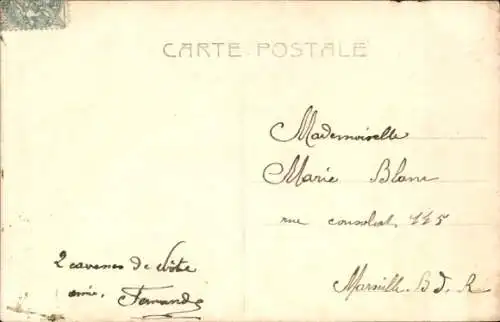 CARTE POSTALE
Mademoiselle
Marie Blanc
rue consolat, 115
Marseille. B. d. R
2 caresses de votre
amie, Fernande